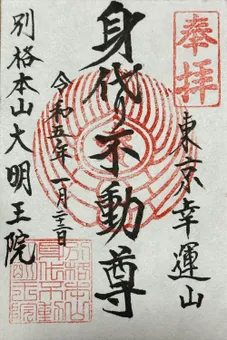 奉拝
東京幸運山
身代り不動尊
令和五年一月二十三日
別格本山大明王院